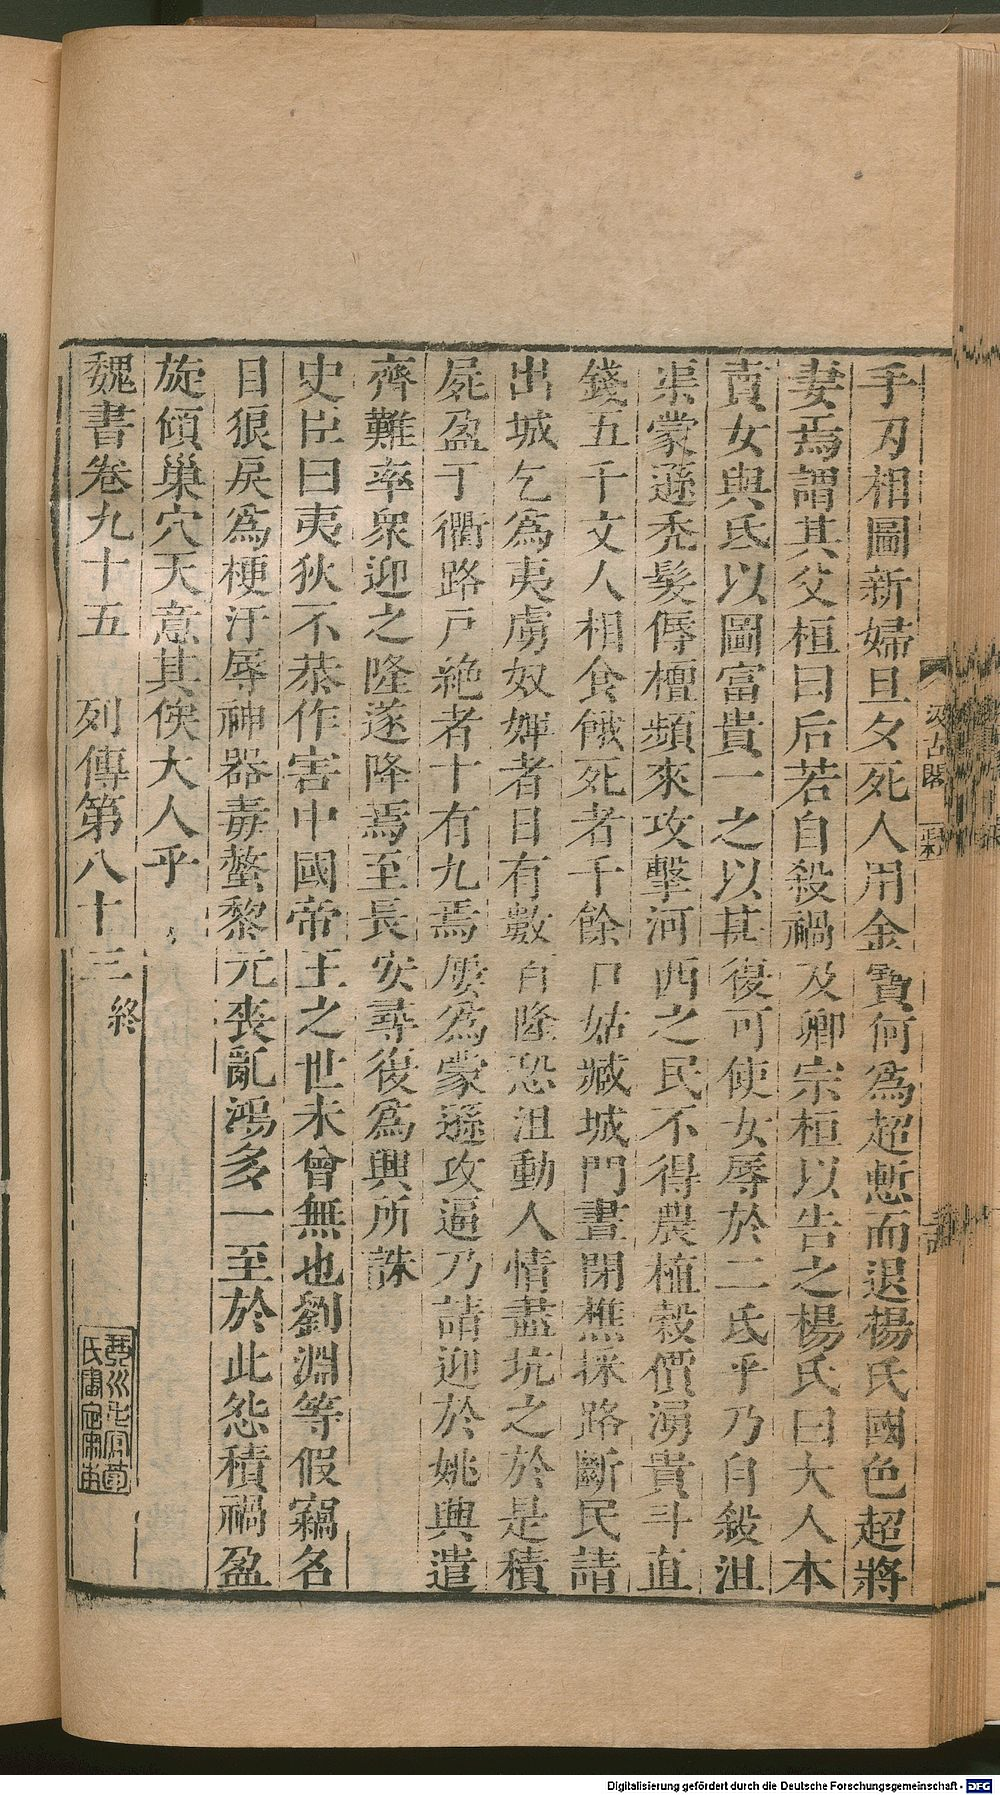 手刃相圖新婦旦夕死人用金寶何爲超慙而退楊氏國色超將
妻焉謂其父桓曰后若自殺禍及卿宗桓以告之楊氏曰大人本
賣女與氐以圖富貴一之以甚復可使女辱於二氐乎乃自殺沮
渠蒙遜禿髮傉檀頻來攻擊河西之民不得農植穀價湧貴斗直
錢五千文人相食餓死者千餘口姑臧城門晝閉樵採路斷民請
出城乞爲夷虜奴婢者日有數百隆恐沮動人情盡坑之於是積
屍盈于衢路戶絶者十有九焉屢爲蒙遜攻逼乃請迎於姚興遣
齊難率衆迎之隆遂降焉至長安尋復爲興所誅
史臣曰夷狄不恭作害中國帝王之世未曾無也劉淵等假竊名
目狼戾爲梗汙辱神器毒螫黎元喪亂鴻多一至於此怨積禍盈
旋傾巢穴天意其俟大人乎
魏書卷九十五 列傳第八十三終
汲古閣
Digitalisierung gefördert durch die Deutsche Forschungsgemeinschaft - DFG